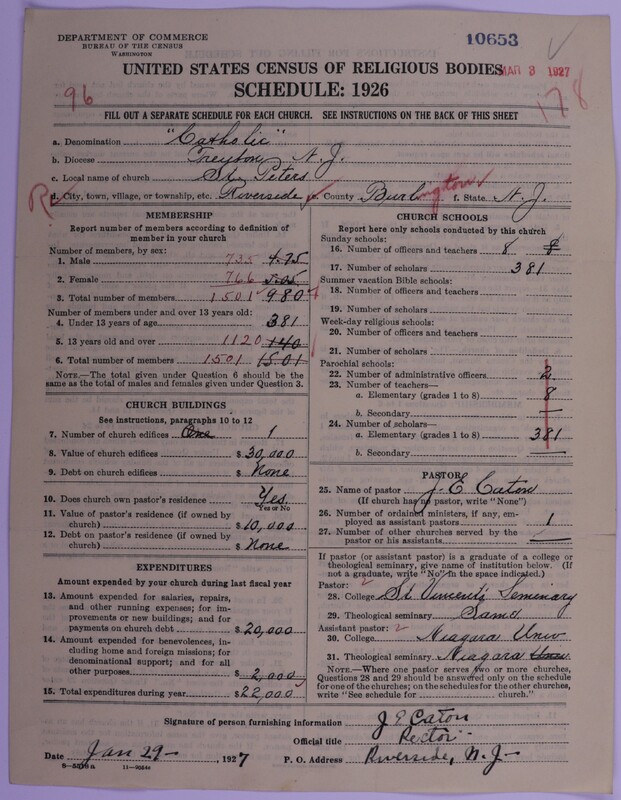 DEPARTMENT OF COMMERCE
BUREAU OF THE CENSUS
WASHINGTON
10653
UNITED STATES CENSUS OF RELIGIOUS BODIES
MAR 3 1927
SCHEDULE: 1926
96
178
FILL OUT A SEPARATE SCHEDULE FOR EACH CHURCH. SEE INSTRUCTIONS ON THE BACK OF THIS SHEET
a. Denomination "Catholic"
b. Diocese Trenton, N. J.
c. Local name of church St. Peters
d. City, town, village, or township, etc. Riverside e. County Burlington f. State N. J.
MEMBERSHIP
Report number of members according to definition of
member in your church
Number of members, by sex:
1. Male 735 475
2. Female 766 505
3. Total number of members 1501 980
Number of members under and over 13 years old:
4. Under 13 years of age 381
5. 13 years old and over 1120 140
6. Total number of members 1501 1501
NOTE.—The total given under Question 6 should be the
same as the total of males and females given under Question 3.
CHURCH BUILDINGS
See instructions, paragraphs 10 to 12
7. Number of church edifices One 1
8. Value of church edifices $ 30,000
9. Debt on church edifices $ None
10. Does church own pastor's residence Yes
Yes or No
11. Value of pastor's residence (if owned by
church) $ 10,000
12. Debt on pastor's residence (if owned by
church) $ None
EXPENDITURES
Amount expended by your church during last fiscal year
13. Amount expended for salaries, repairs,
and other running expenses; for im-
provements or new buildings; and for
payments on church debt $ 20,000
14. Amount expended for benevolences, in-
cluding home and foreign missions; for
denominational support; and for all
other purposes $ 2,000
15. Total expenditures during year $ 22,000
CHURCH SCHOOLS
Report here only schools conducted by this church
Sunday schools:
16. Number of officers and teachers 8
17. Number of scholars 381
Summer vacation Bible schools:
18. Number of officers and teachers
19. Number of scholars
Week-day religious schools:
20. Number of officers and teachers
21. Number of scholars
Parochial schools:
22. Number of administrative officers 2
23. Number of teachers—
a. Elementary (grades 1 to 8) 8
b. Secondary
24. Number of scholars—
a. Elementary (grades 1 to 8) 381
b. Secondary
PASTOR
25. Name of pastor J. E. Caton
(If church has no pastor, write "None")
26. Number of ordained ministers, if any, em-
ployed as assistant pastors 1
27. Number of other churches served by the
pastor or his assistants
If pastor (or assistant pastor) is a graduate of a college or
theological seminary, give name of institution below. (If
not a graduate, write "No" in the space indicated.)
Pastor: 2
28. College St. Vincents Seminary
29. Theological seminary Same
Assistant pastor: 2
30. College Niagara Univ
31. Theological seminary Niagara Univ
NOTE.—Where one pastor serves two or more churches,
Questions 28 and 29 should be answered only on the schedule
for one of the churches; on the schedules for the other churches,
write "See schedule for church."
Signature of person furnishing information J E Caton
Official title Rector
Date Jan 29 — , 1927 P. O. Address Riverside, N. J.
11—9034a